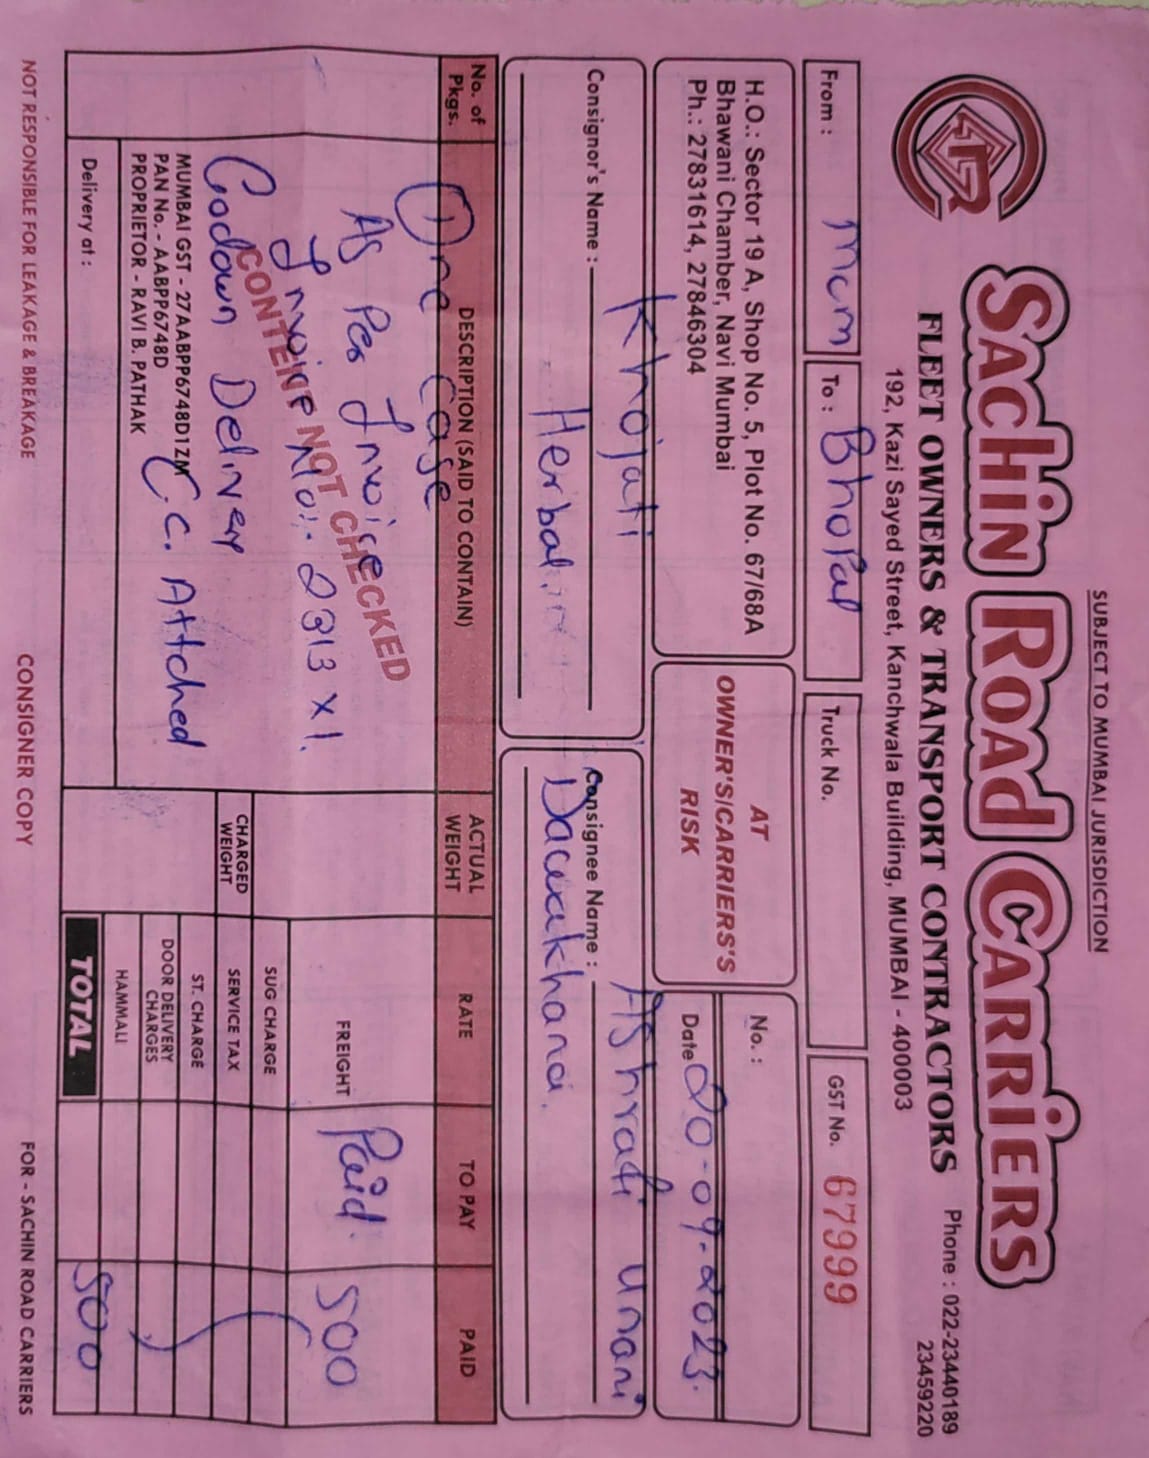 SUBJECT TO MUMBAI JURISDICTION
SACHIN ROAD CARRIERS
FLEET OWNERS & TRANSPORT CONTRACTORS
Phone : 022-23440189
23459220
192, Kazi Sayed Street, Kanchwala Building, MUMBAI - 400003
From : Mcm
To : Bhopal
Truck No.
GST No. 67999
H.O.: Sector 19 A, Shop No. 5, Plot No. 67/68A
Bhawani Chamber, Navi Mumbai
Ph.: 27831614, 27846304
AT
OWNER'S/CARRIERS'S
RISK
No. :
Date 20-09-2023.
Consignor's Name : Khojati
Herbal
Consignee Name : Ashrafi Unani
Dawakhana.
No. of Pkgs.
DESCRIPTION (SAID TO CONTAIN)
ACTUAL WEIGHT
RATE
TO PAY
PAID
One Case
As Per Invoice
Invoice No:- 2313 x 1.
CONTENT NOT CHECKED
Godown Delivery
C.C. Attched
FREIGHT Paid. 500
SUG CHARGE
CHARGED WEIGHT
SERVICE TAX
ST. CHARGE
DOOR DELIVERY CHARGES
HAMMALI
TOTAL 500
MUMBAI GST - 27AABPP6748D1ZM
PAN No. - AABPP6748D
PROPRIETOR - RAVI B. PATHAK
Delivery at :
NOT RESPONSIBLE FOR LEAKAGE & BREAKAGE
CONSIGNER COPY
FOR - SACHIN ROAD CARRIERS